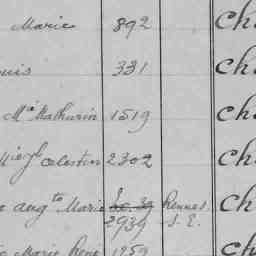 Marie 892 Ch
uis 331 Ch
Mathurin 1519 Ch
Celestin 2302 Ch
e Aug to Marie Rennes Ch
2939 S. E.
Marie René 1959 Ch